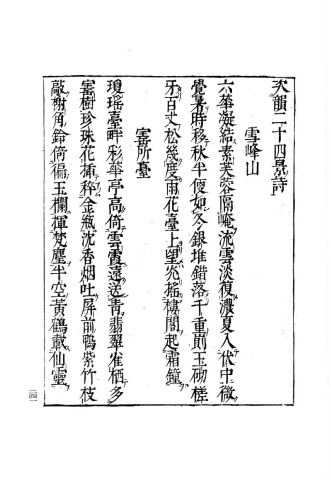 次韻二十四景詩
雪峰山
六華凝結素芙蓉隔崦流雲淡復濃夏入伏中微
覺暑時移秋半便如冬銀堆錯落千重崱玉砌槎
牙百丈松幾度雨花臺上望光搖樓閣起霜鐘
寶所臺
瓊瑤臺畔彩華亭高倚雲霞遠送青翡翠雀栖多
寶樹珍珠花插稱金瓶沈香烟吐屏前鴨紫竹枝
敲榭角鈴倚徧玉欄揮梵麈半空黃鶴載仙靈